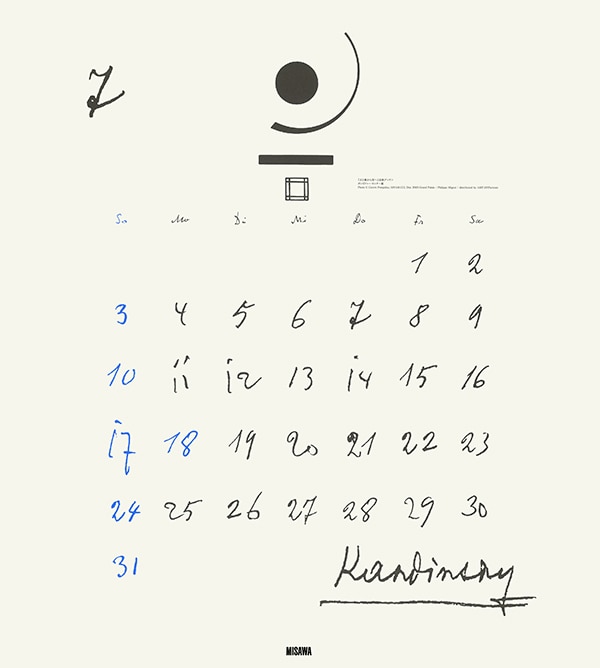 7
So Mo Di Mi Do Fr Sa
1 2
3 4 5 6 7 8 9
10 11 12 13 14 15 16
17 18 19 20 21 22 23
24 25 26 27 28 29 30
31
Kandinsky
MISAWA